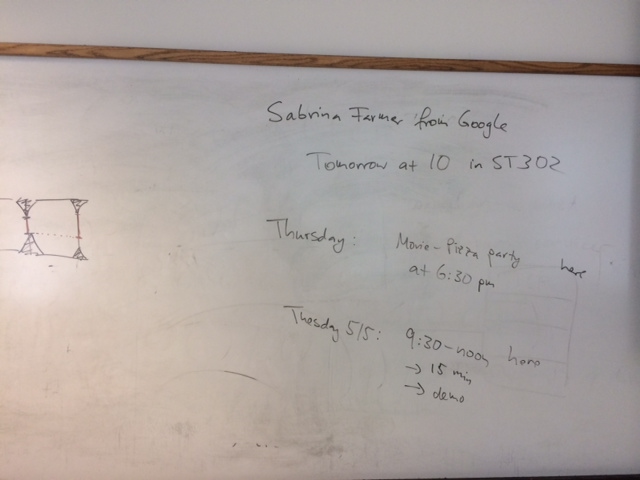 Sabrina Farmer from Google
Tomorrow at 10 in ST302
Thursday: Movie-Pizza party here
at 6:30 pm
Tuesday 5/5: 9:30-noon here
→ 15 min
→ demo